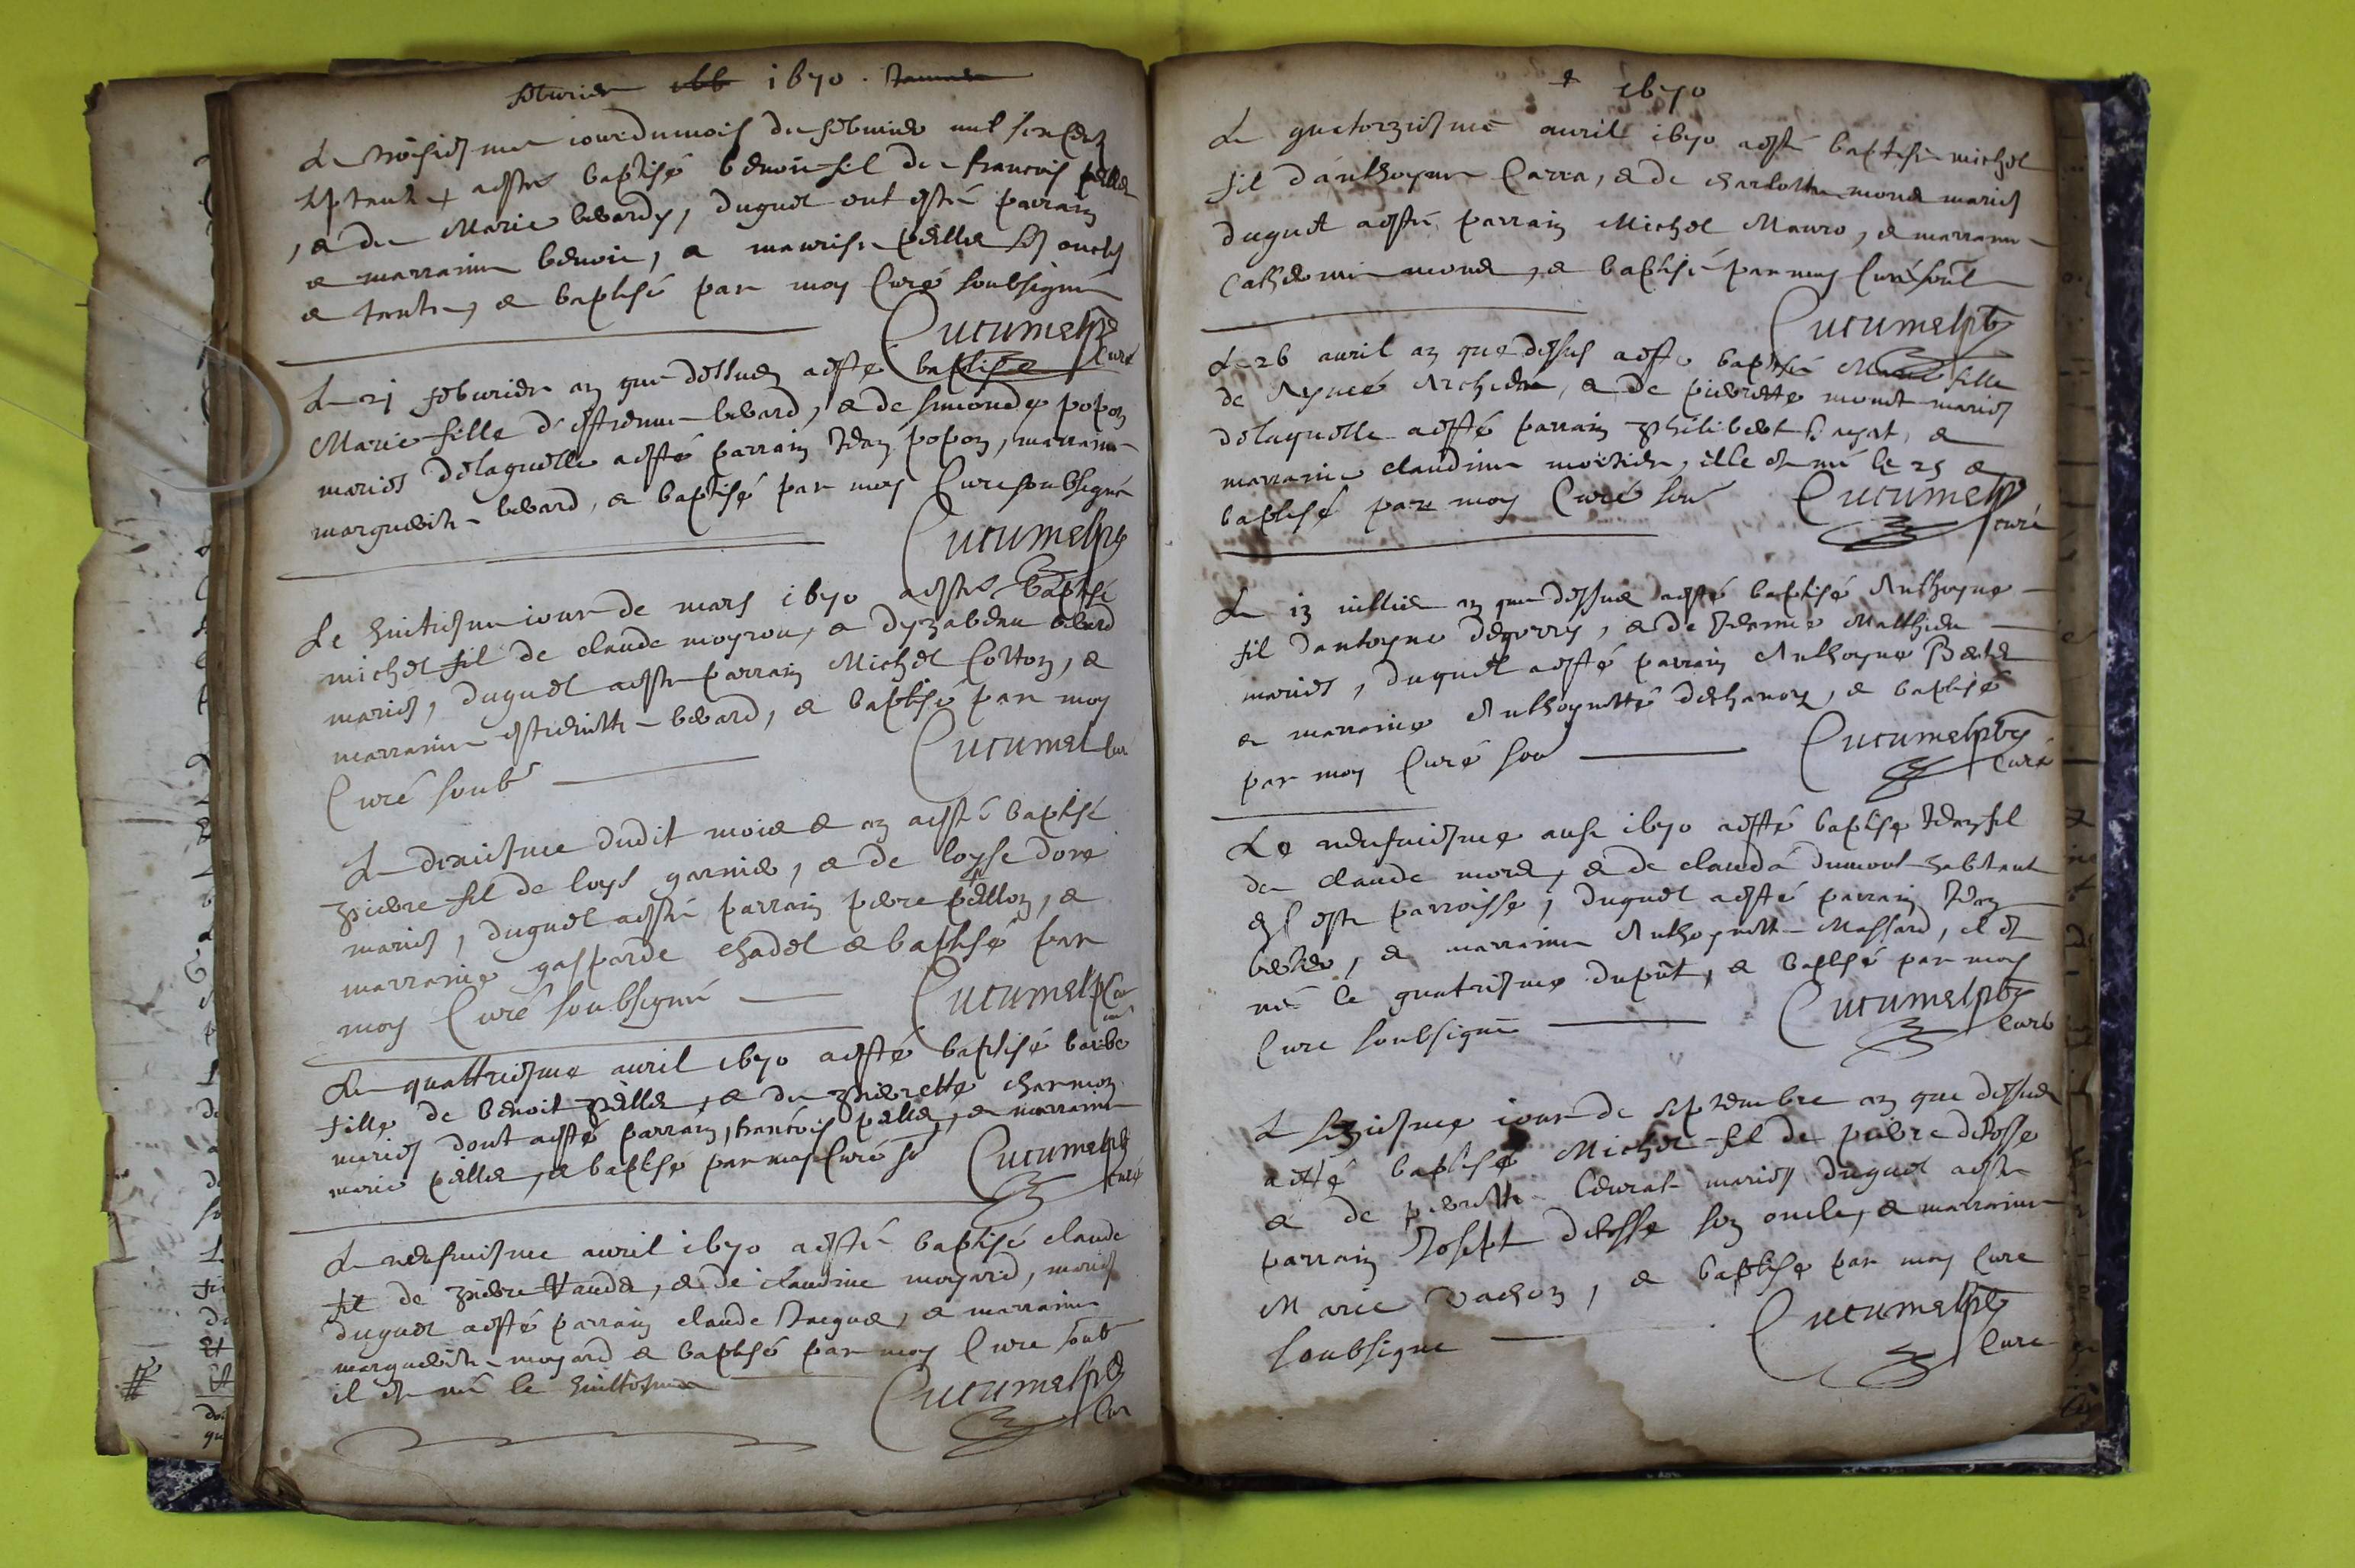 feburier 1670
Le troisiesme jour du mois de febvrier mil six cens
septente + a esté baptisé benoit fil de francois pelle
, & de Marie bevardy, duquel ont esté parrain
& marraine benoit, & maurise pelle ses oncle
& tente, & baptisé par moy Curé soubsigné
Cucumel pbr
Curé
Le 21 feburier an que dessus a esté baptise
Marie fille d'estienne bevard, & de simonde popon
mariés delaquelle a esté parrain Jean popon, marraine
marguerite bevard, & baptisé par moy Curé soubsigné
Cucumel pbr
Le huitiesme iour de mars 1670 a esté baptisé
michel fil de claude moyrou, & dyzabeau bevard
mariés, duquel a esté parrain Michel Cotton, &
marraine estiennette bevard, & baptisé par moy
Curé soubs
Cucumel cur
Le dixiesme dudit mois & an a esté baptisé
Pierre fil de loys garnier, & de loyse dore
mariés, duquel a esté parrain pierre pellon, &
marraine gasparde chadel & baptisé par
moy Curé soubsigné
Cucumel p Cur
Le quattriesme avril 1670 a esté baptisé barbe
fille de benoit pelle, & de Pierrette charmon
mariés dont a esté parrain, francois pelle, & marraine
marie pelle, & baptisé par moy Curé ss
Cucumel pbr
curé
Le nerfuiesme avril 1670 a esté baptisé claude
fil de Pierre Vande, & de claudine moyard, mariés
duquel a esté parrain claude Jacque, & marraine
marguerite moyard & baptisé par moy Curé soub
il est né le huittiesme
Cucumel pbr
Cur
+ 1670
Le quatorziesme avril 1670 a esté baptisé michel
fil d'anthoyne Carra, & de charlotte morel mariés
duquel a esté parrain Michel Mauro, & marraine
Catherine morel, & baptisé par moy Curé soub
Cucumel pbr
Le 26 avril an que dessus a esté baptisé Marie fille
de Aymé Archier, & de pierrette monet mariés
delaquelle a esté parrain Philibert, &
marraine claudine moitier, elle est né le 25 &
baptisé par moy Curé sou
Cucumel p
curé
Le 13 juillier an que dessus a esté baptisé Anthoyne
fil dantoyne degorry, & de Jeanne Matthieu
mariés, duquel a esté parrain Anthoyne Berter
& marraine Anthoynette dechanoz, & baptisé
par moy Curé sou
Cucumel pbr
Curé
Le nerfuiesme aust 1670 a esté baptisé Jean fil
de claude morel, & de clauda dumont habitant
en ceste parroisse, duquel a esté parrain Jean
berter, & marraine Anthoynette Massard, il est
né le quatriesme dupnt, & baptisé par moy
Curé soubsigné
Cucumel pbr
Curé
Le seziesme iour de septembre an que dessus
a esté baptisé Michel fil de pierre detosse
& de pierrette Ceurat mariés duquel a esté
parrain Joseph detosse son oncle, & marraine
Marie Vachon, & baptisé par moy Curé
soubsigné
Cucumel pbr
Curé